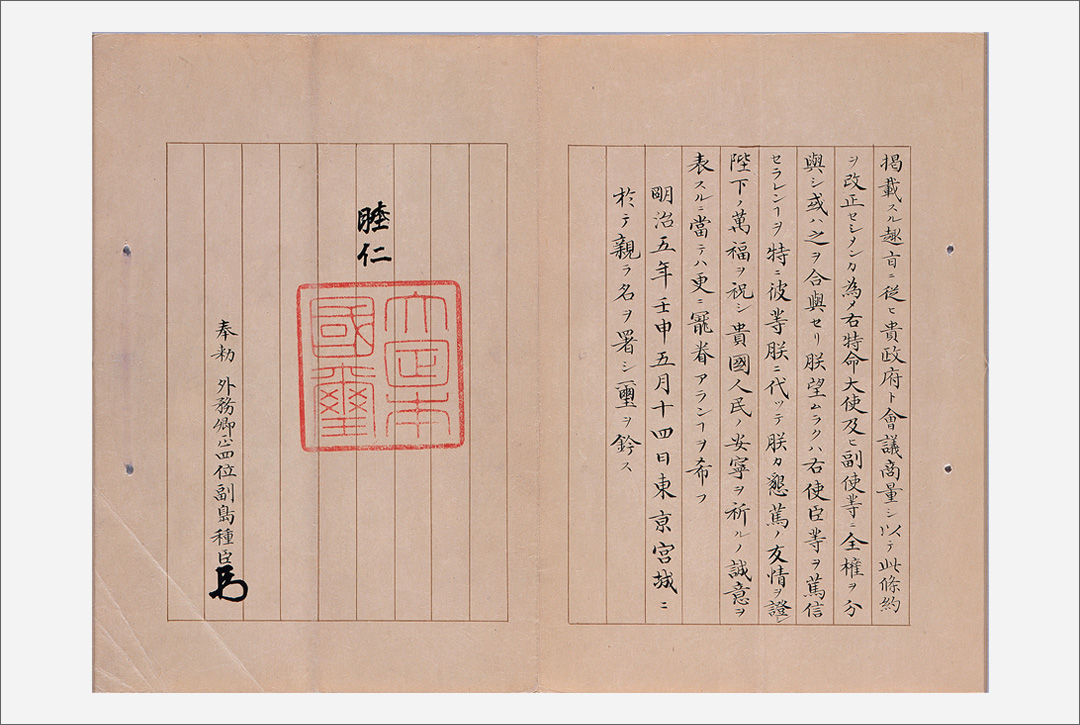 掲載スル趣旨ニ従ヒ貴政府ト會議商量シ以テ此條約
ヲ改正セシメンカ為メ右特命大使及ヒ副使等ニ全權ヲ分
與シ或ハ之ヲ合與セリ朕望ムラクハ右使臣等ヲ篤信
セラレンヿヲ特ニ彼等朕ニ代ッテ朕カ懇篤ノ友情ヲ證シ
陛下ノ萬福ヲ祝シ貴國人民ノ安寧ヲ祈ルノ誠意ヲ
表スルニ當テハ更ニ寵眷アランヿヲ希フ
明治五年壬申五月十四日東京宮城ニ
於テ親ラ名ヲ署シ璽ヲ鈐ス
睦仁
大日本
國璽
奉勅 外務卿正四位副島種臣